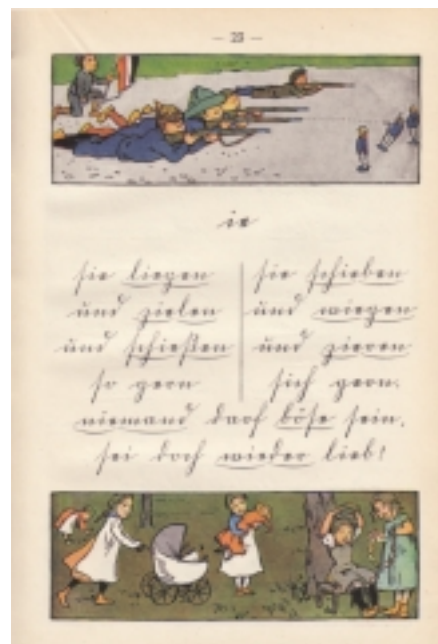 — 23 —
ie
sie liegen
und zielen
und schießen
so gern
sie schieben
und wiegen
und zieren
sich gern.
niemand darf böse sein.
sei doch wieder lieb!